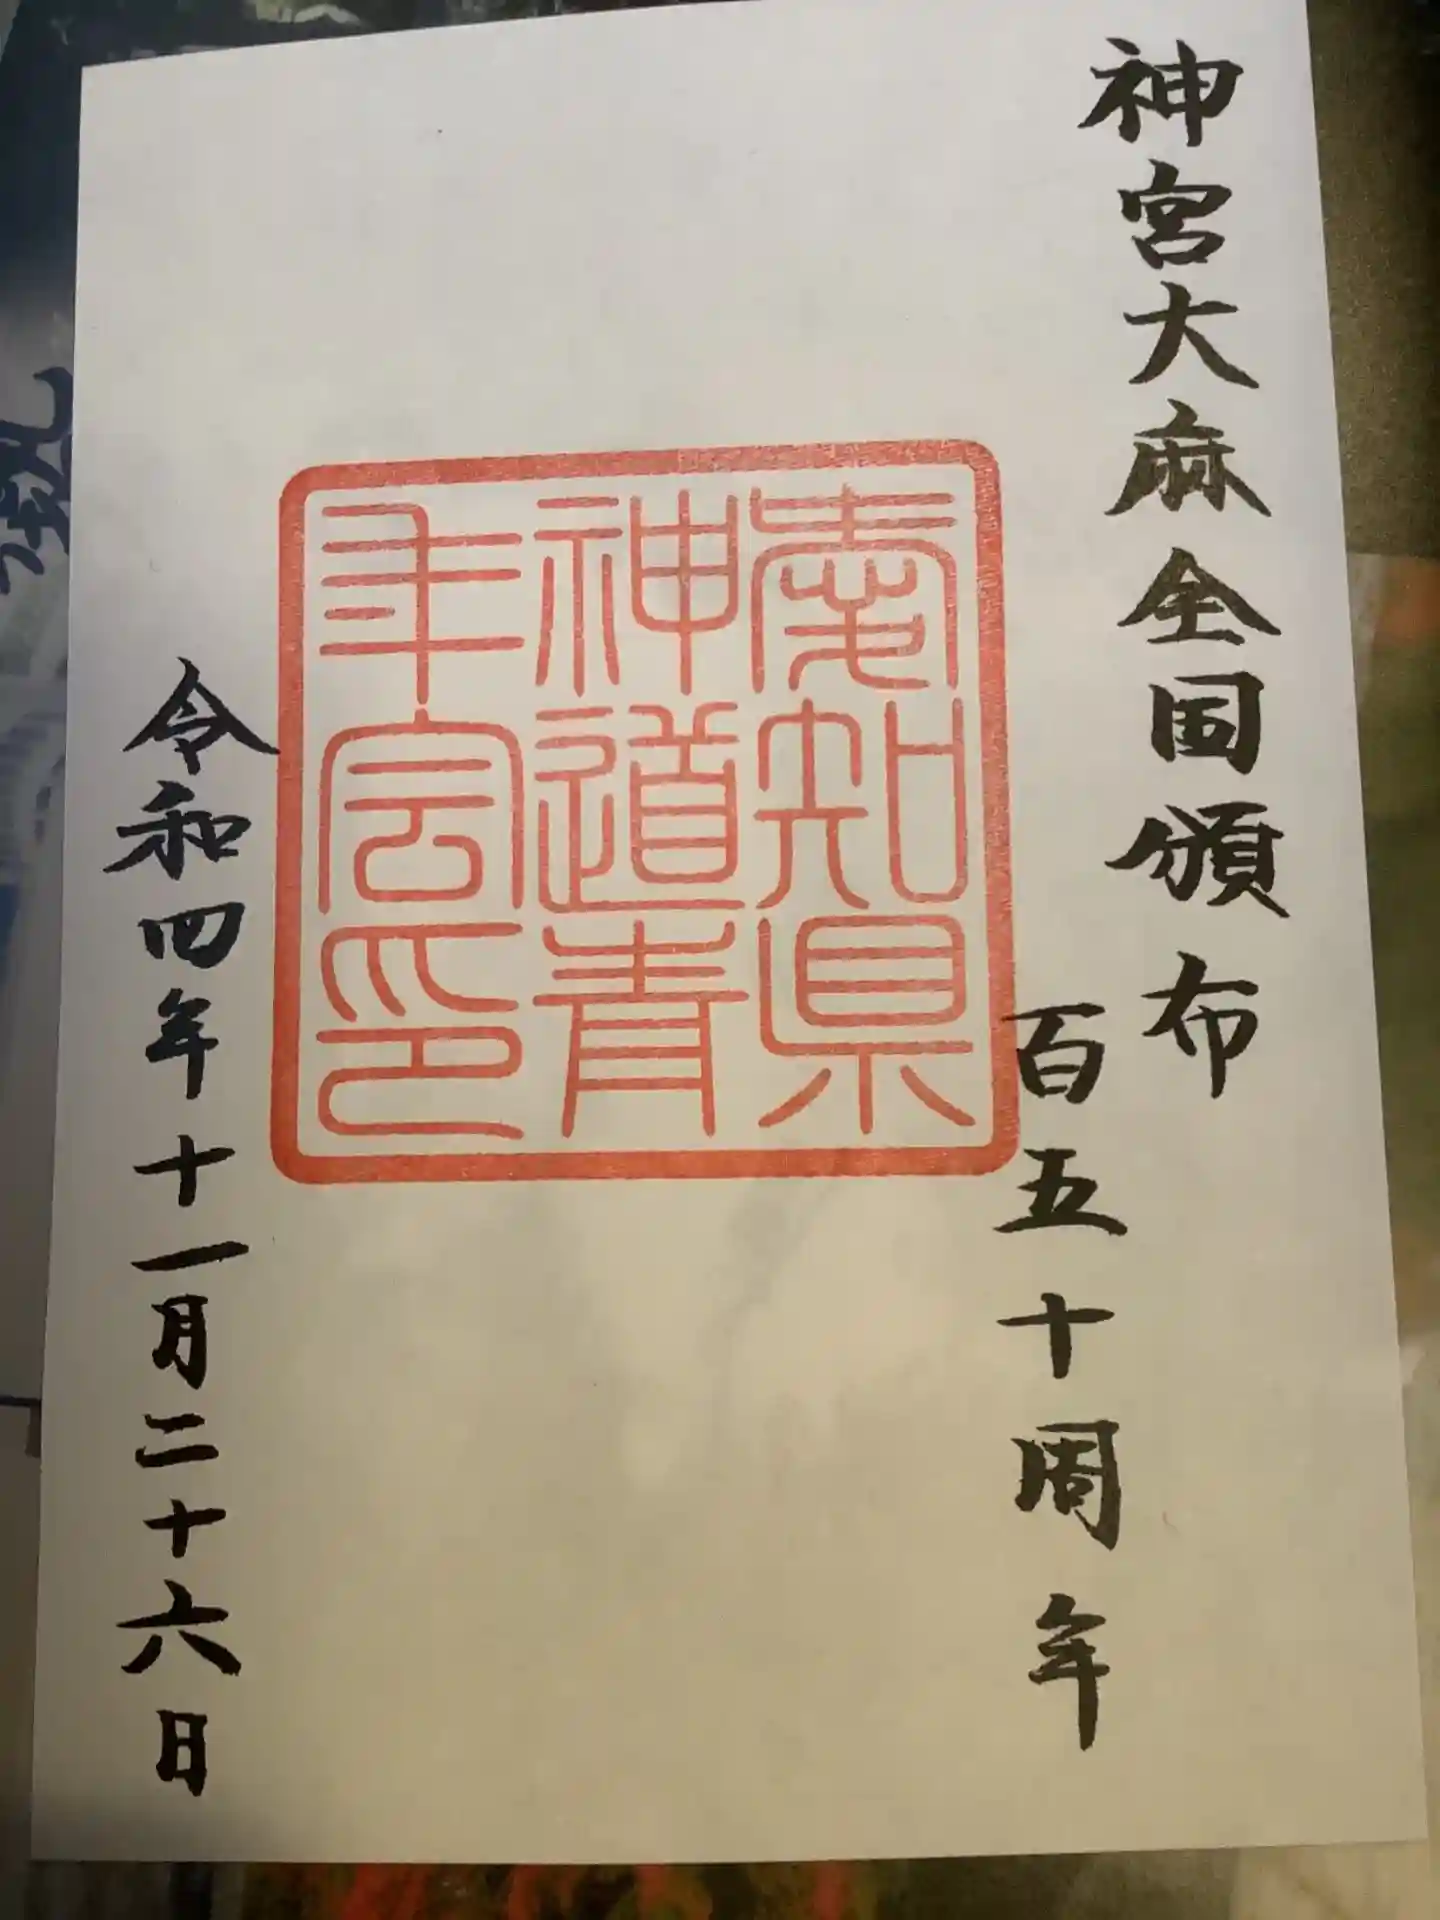 神宮大麻全国頒布
百五十周年
愛知県
神道青
年会印
令和四年十一月二十六日